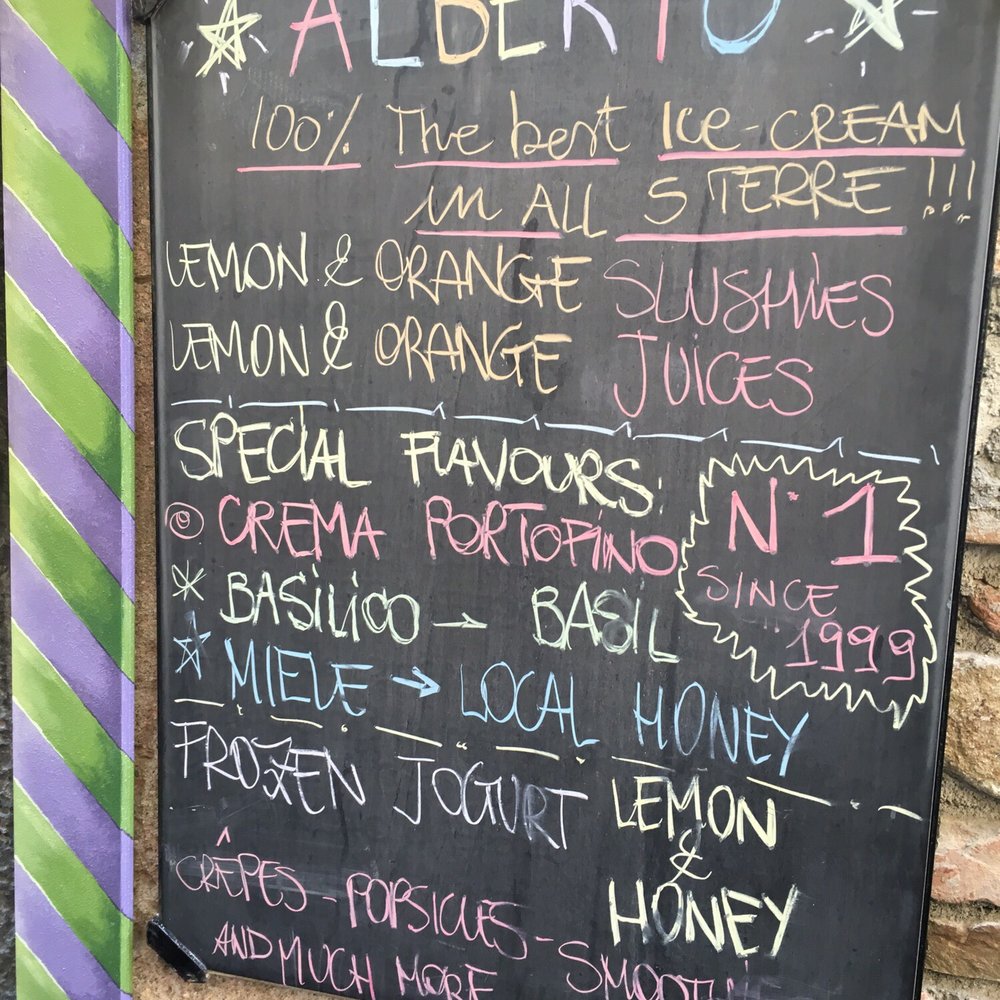 ALBERTO
100% The best ICE-CREAM
in ALL 5 TERRE !!!
LEMON & ORANGE SLUSHIES
LEMON & ORANGE JUICES
SPECIAL FLAVOURS:
CREMA PORTOFINO
BASILICO → BASIL
MIELE → LOCAL HONEY
N° 1
SINCE
1999
FROZEN JOGURT LEMON
&
HONEY
CRÊPES - POPSICLES -
AND MUCH MORE